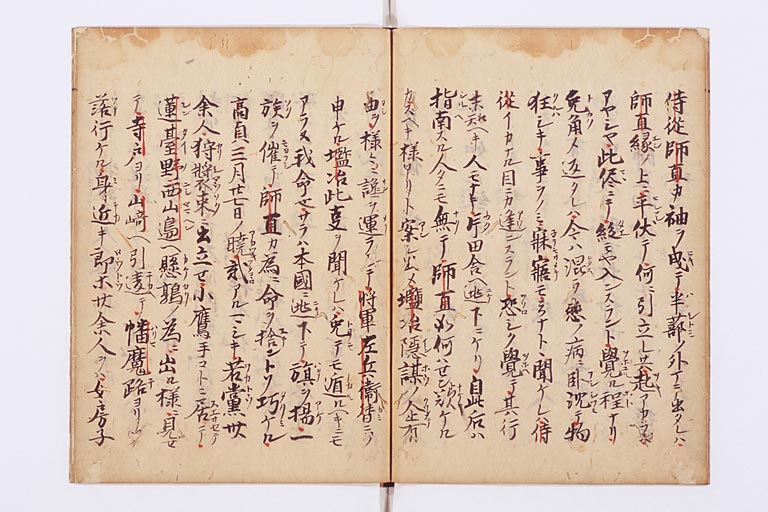 侍従師直カ袖ヲ曳テ半蔀ノ外マテ出タレハ
師直縁ノ上ニ平伏テ何ニ引立レ共起アカラス
アヤシヤ此侭ニテ絶モヤ入ンスラント覚ル程ナリ
兎角メ返タレハ今ハ混ラ恋ノ病ニ臥沈テ物
狂シキ事ヲノミ寐寤モスナト聞ケレハ侍
従イカナル目カ逢ンスラント恐シク覚テ其行
末知ヘキ人モナキ片田舎ヘ迯下ニケリ自此后ハ
指南スル人タニモ無テ師直如何ハせン歎ケル
カスヘキ様アリト案出メ塩冶隠謀ノ企有
由ヲ様々ニ讒ヲ運ラシテ将軍左兵衛督ニソ
申ケル塩冶此亊ヲ聞ケレハ兎テモ遁ルヘキニモ
アラヌ我命せサラハ本國ニ迯下テ旗ヲ揚一
族ヲ催テ師直カ為ニ命ヲ捨ントソ巧ケル
高貞三月廿七日ノ暁弐フルマシキ若黨卅
余人狩装束ニ出立せ小鷹手コトニ居テ
蓮臺野西山邊ヘ懸鶉ノ為ニ出ル様ニ見せ
テ寺戸ヨリ山﨑ヘ引違テ幡磨路ヨリ
落行ケル身近キ郎等廿余人ヲハ女房子